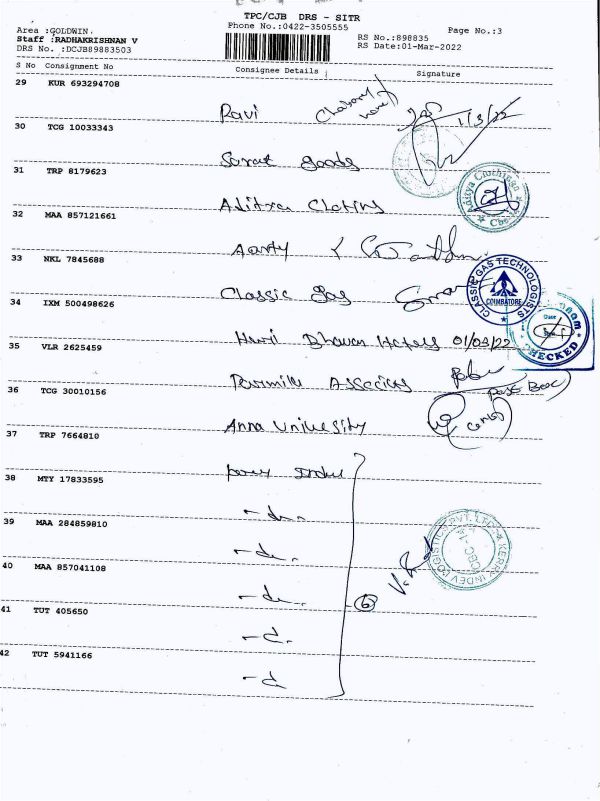 TPC/CJB DRS - SITR
Phone No.:0422-3505555
Page No.:3
Area :GOLDWIN.
Staff :RADHAKRISHNAN V
DRS No. :DCJB89883503
RS No.:898835
RS Date:01-Mar-2022
S No Consignment No Consignee Details Signature
29 KUR 693294708
Ravi 1/3/22
30 TCG 10033343
Surat goods
31 TRP 8179623
Aditya Clothing
Aditya Clothings
32 MAA 857121661
Aarty
33 NKL 7845688
Classic gas
CLASSIC GAS TECHNOLOGISTS
COIMBATORE
34 IXM 500498626
Hari Bhavan Hotels 01/03/22
Date
CHECKED
35 VLR 2625459
Associates
36 TCG 30010156
Anna University
37 TRP 7664810
38 MTY 17833595
- do -
39 MAA 284859810
- do -
KERRY INDEV LOGISTICS PVT. LTD.
CBC
40 MAA 857041108
- do -
6
41 TUT 405650
- d -
42 TUT 5941166
- d